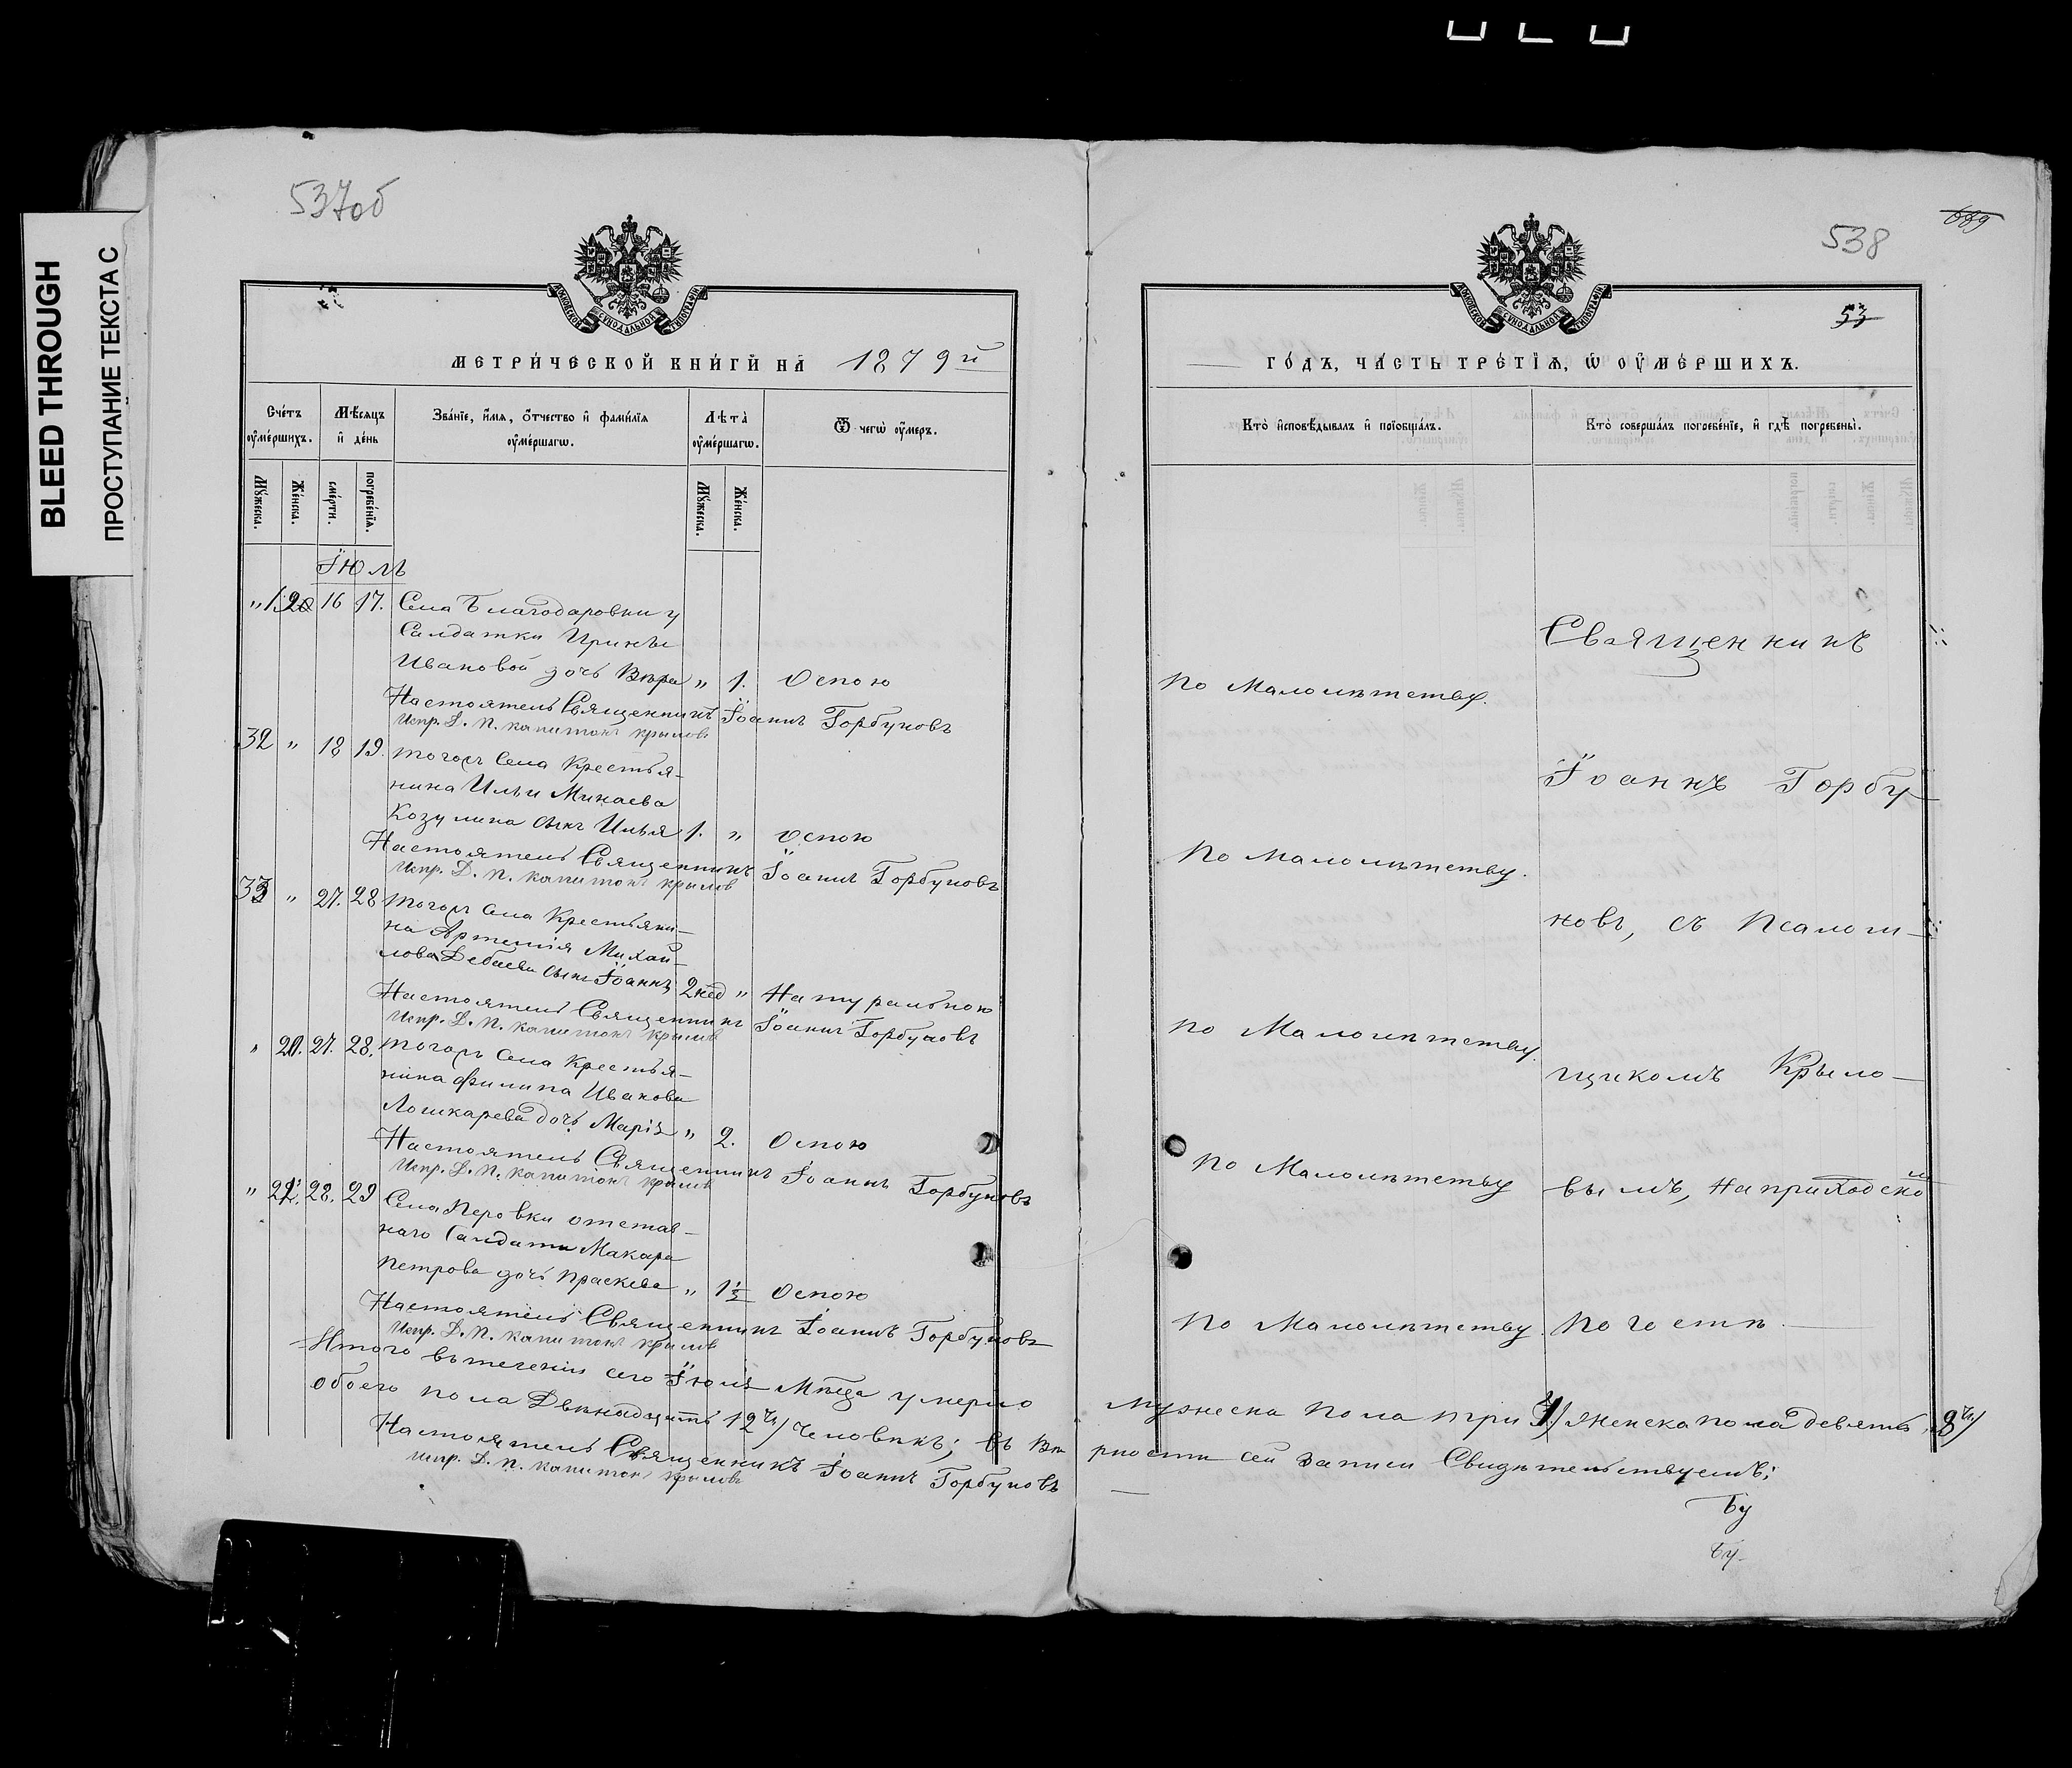 BLEED THROUGH
ПРОСТУПАНИЕ ТЕКСТА С
537об
МОСКОВСКОЙ СѴНОДАЛЬНОЙ ТИПОГРАФІИ
МЕТРИ́ЧЕСКОЙ КНИ́ГИ НА 1879й
Сче́тъ оуме́ршихъ.
Мѣ́сяцъ и де́нь
Зва́нїе, и́мя, о́тчество и фами́лїя оуме́ршагѡ.
Лѣ́та оуме́ршагѡ.
Ѿ чегѡ̀ оу́меръ.
Мꙋ́жеска.
Же́нска.
сме́рти.
погребе́нїя.
Мꙋ́жеска.
Же́нска.
Іюль
" 16 17. Села Благодаровки у
Салдатки Ирины
Ивановой дочь Вѣра " 1. Оспою
Настоятель Священникъ Іоаннъ Горбуновъ
Испр. Д. П. Капитонъ Крыловъ
32 " 18 19. Тогожъ Села Крестья-
нина Ильи Минаева
Козулина сынъ Илья 1. " Оспою
Настоятель Священникъ Іоаннъ Горбуновъ
Испр. Д. П. Капитонъ Крыловъ
33 " 27. 28 Тогожъ Села Крестьяни-
на Артемія Михай-
лова Дебаева сынъ Іоаннъ 2 нед " Натуральною
Настоятель Священникъ Іоаннъ Горбуновъ
Испр. Д. П. Капитонъ Крыловъ
" 27. 28. Тогожъ Села Крестья-
нина Филипа Иванова
Лошкарева дочь Марія " 2. Оспою
Настоятель Священникъ Іоаннъ Горбуновъ
Испр. Д. П. Капитонъ Крыловъ
" 28. 29 Села Перовки отстав-
наго Салдата Макара
Петрова дочь Праскева " Оспою
Настоятель Священникъ Іоаннъ Горбуновъ
Испр. Д. П. Капитонъ Крыловъ
Итого въ теченіи сего Іюля Мѣсца умерло
обоего пола Двѣнадцать 12 ч/ Человѣкъ; въ вѣ
Настоятель Священникъ Іоаннъ Горбуновъ
Испр. Д. П. Капитонъ Крыловъ
538
53
МОСКОВСКОЙ СѴНОДАЛЬНОЙ ТИПОГРАФІИ
ГО́ДЪ, ЧА́СТЬ ТРЕ́ТЇѦ, Ѡ ОУМЕ́РШИХЪ.
Кто̀ исповѣ́дывалъ и прїобща́лъ.
Кто̀ соверша́лъ погребе́нїе, и гдѣ̀ погребены̀.
Священникъ
По Малолѣтству.
Іоаннъ Горбу-
По Малолѣтству.
новъ, съ Псалом-
По Малолѣтству.
щикомъ Крыло-
По Малолѣтству
вымъ, на приходском
По Малолѣтству.
погостѣ.
мужеска пола три женска пола девять,
рности сей записи Свидѣтельствуемъ;
Бу
Бу-